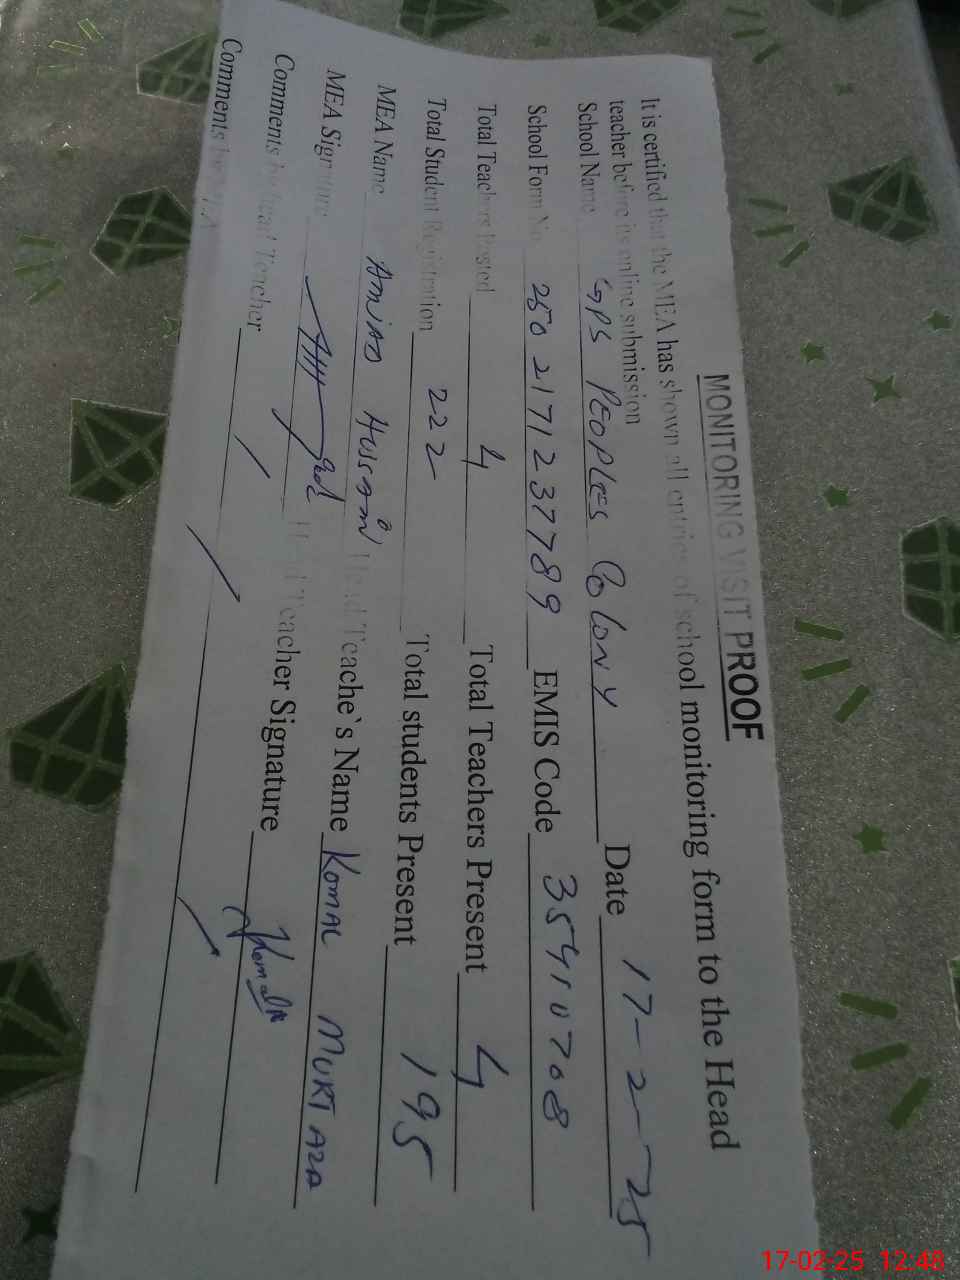 MONITORING VISIT PROOF
It is certified that the MEA has shown all entries of school monitoring form to the Head
teacher before its online submission
School Name GPS PEOPLES COLONY Date 17-2-25
School Form No. 250217123 7789 EMIS Code 35910708
Total Teachers Posted 4 Total Teachers Present 4
Total Student Registration 222 Total students Present 195
MEA Name AMJAD HUSSAIN Head Teache`s Name KOMAL MURTAZA
MEA Signature Head Teacher Signature
Comments by Head Teacher
Comments by MEA
17-02-25 12:48